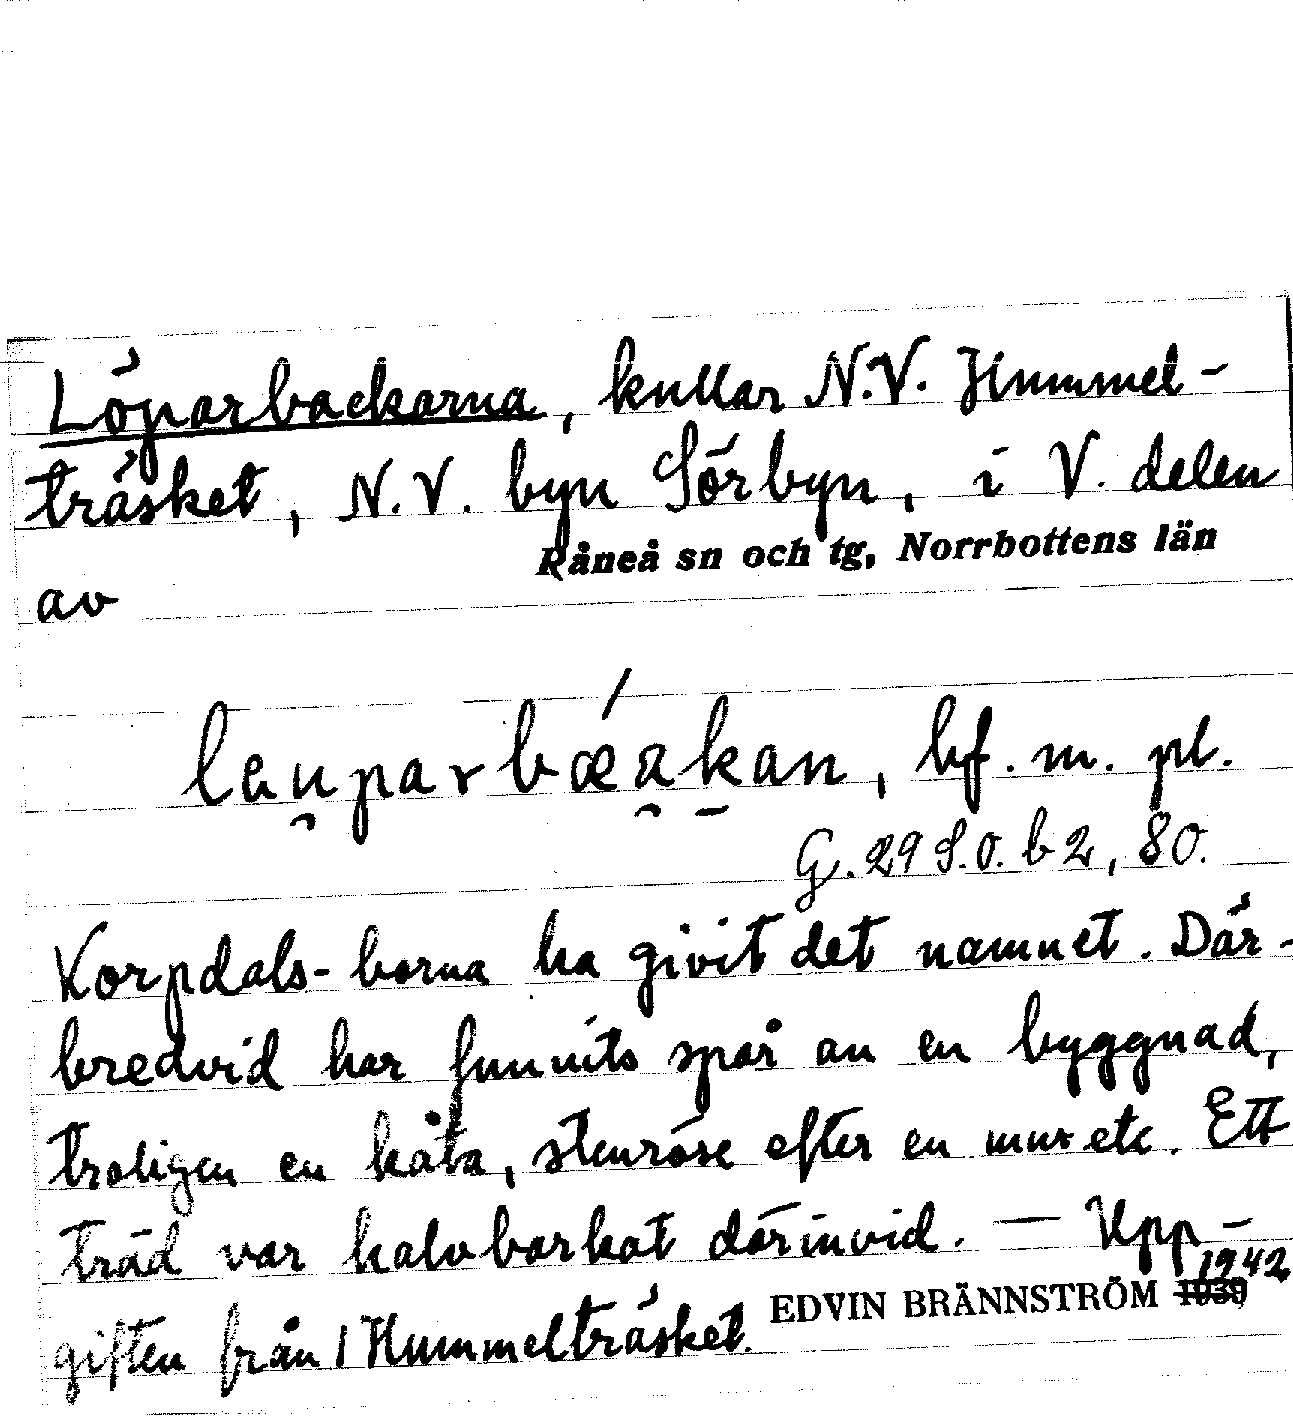 Löparbackarna, kullar N.V. Hummel-
träsket, N.V. byn Sörbyn, i V. delen
Råneå sn och tg, Norrbottens län
av
lau̯parbæa̯k̠an, bf. m. pl.
G. 29 S.O. b 2, 80.
Korpdals-borna ha givit det namnet. Där-
bredvid har funnits spår av en byggnad,
troligen en kåta, stenröse efter en mur etc. Ett
träd var halvbarkat därinvid. — Upp-
giften från 1 Hummelträsket.
EDVIN BRÄNNSTRÖM 1939 1942